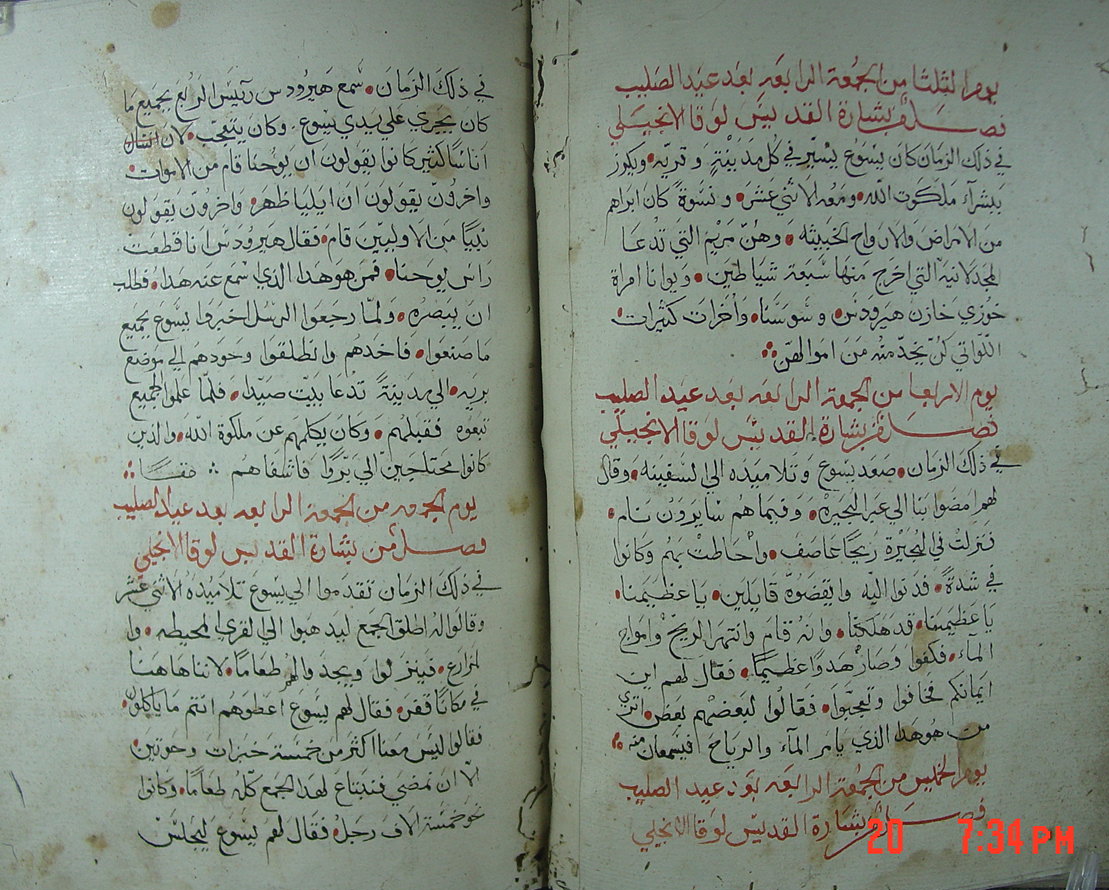 يوم الثلثا من الجمعة الرابعه بعد عيد الصليب
فصل من بشارة القديس لوقا الانجيلي
في ذلك الزمان كان يسوع يسير في كل مدينة وقريه ويكرز
يبشر ملكوت الله ومعه الاثني عشر ونسوة كان ابراهم
من الامراض والارواح الخبيثه وهن مريم التي تدعا
المجدلانية التي اخرج منها سبعة شياطين ويوانا امراة
خوزي خازن هيرودس وسوسنا واخرات كثيرات
اللواتي كن يخدمنه من اموالهن
يوم الاربعا من الجمعة الرابعه بعد عيد الصليب
فصل من بشارة القديس لوقا الانجيلي
في ذلك الزمان صعد يسوع وتلاميذه الي السفينه وقال
لهم امضوا بنا الي عبر البحيرة وفيما هم سايرون نام
فنزلت في البحيرة ريحا عاصف واحاطت بهم وكانوا
في شدة فدنوا اليه وايقضوه قايلين يا عظيمنا
يا عظيمنا قد هلكنا وانه قام وانتهر الريح وامواج
المآء فكفوا وصار هدوا عظيما فقال لهم اين
ايمانكم فخافوا وتعجبوا فقالوا لبعضهم بعض اتري
من هو هدا الذي يامر المآء والرياح فيسمعان منه
يوم الخميس من الجمعة الرابعه بعد عيد الصليب
فصل من بشارة القديس لوقا الانجيلي
20 7:34 PM
في ذلك الزمان سمع هيرودس رئيس الربع بجميع ما
كان يجري علي يدي يسوع وكان يتعجب لان
اناسا كثير كانوا يقولون ان يوحنا قام من الاموات
واخرون يقولون ان ايليا ظهر واخرون يقولون
نبيا من الاوليين قام فقال هيرودس انا قطعت
راس يوحنا فمن هو هدا الذي اسمع عنه هدا فطلب
ان يبصره ولما رجعوا الرسل اخبروا يسوع بجميع
ما صنعوا فاخدهم وانطلقوا وحودهم الي موضع
بريه الي مدينة تدعا بيت صيدا فلما علموا الجميع
تبعوه فقبلهم وكان يكلمهم عن ملكوة الله والذين
كانوا محتاجين الي يبروا فاشفاهم
يوم الجمعه من الجمعة الرابعه بعد عيد الصليب
فصل من بشارة القديس لوقا الانجيلي
في ذلك الزمان تقدموا الي يسوع تلاميذه الاثني عشر
وقالوا له اطلق الجمع ليدهبوا الي القري المحيطه وا
لمزارع فينزلوا ويجدوا لهم طعاما لاننا هاهنا
في مكانا قفر فقال لهم يسوع اعطوهم انتم ما ياكلون
فقالوا ليس معنا اكثر من خمسة خبزات وحوتين
الا ان نمضي فنبتاع لهدا الجمع كله طعاما وكانوا
نحو خمسة الاف رجل فقال لهم يسوع ليجلس